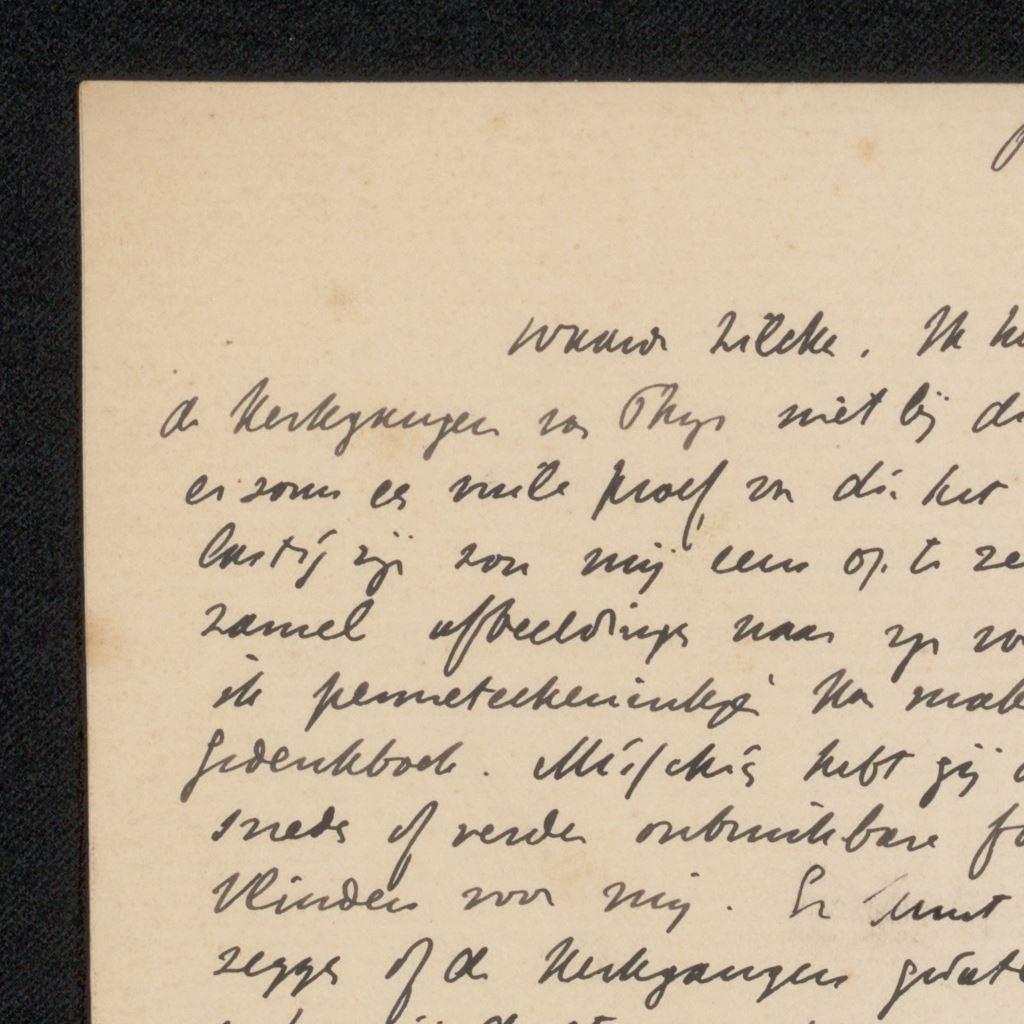 Waarde Zilcke. Ik he
de Kerkgangers van Thijs niet bij de
er soms een vuile proef van die het
lastig zijn van mij eens op te ze
zamel afbeeldingen naar zijn we
ik penneteekeninkje kan mak
Gedenkboek. Misschien hebt gij
snede of verder onbruikbare fo
Vlinders voor mij. En kunt
zeggen of de Kerkgangers geëts